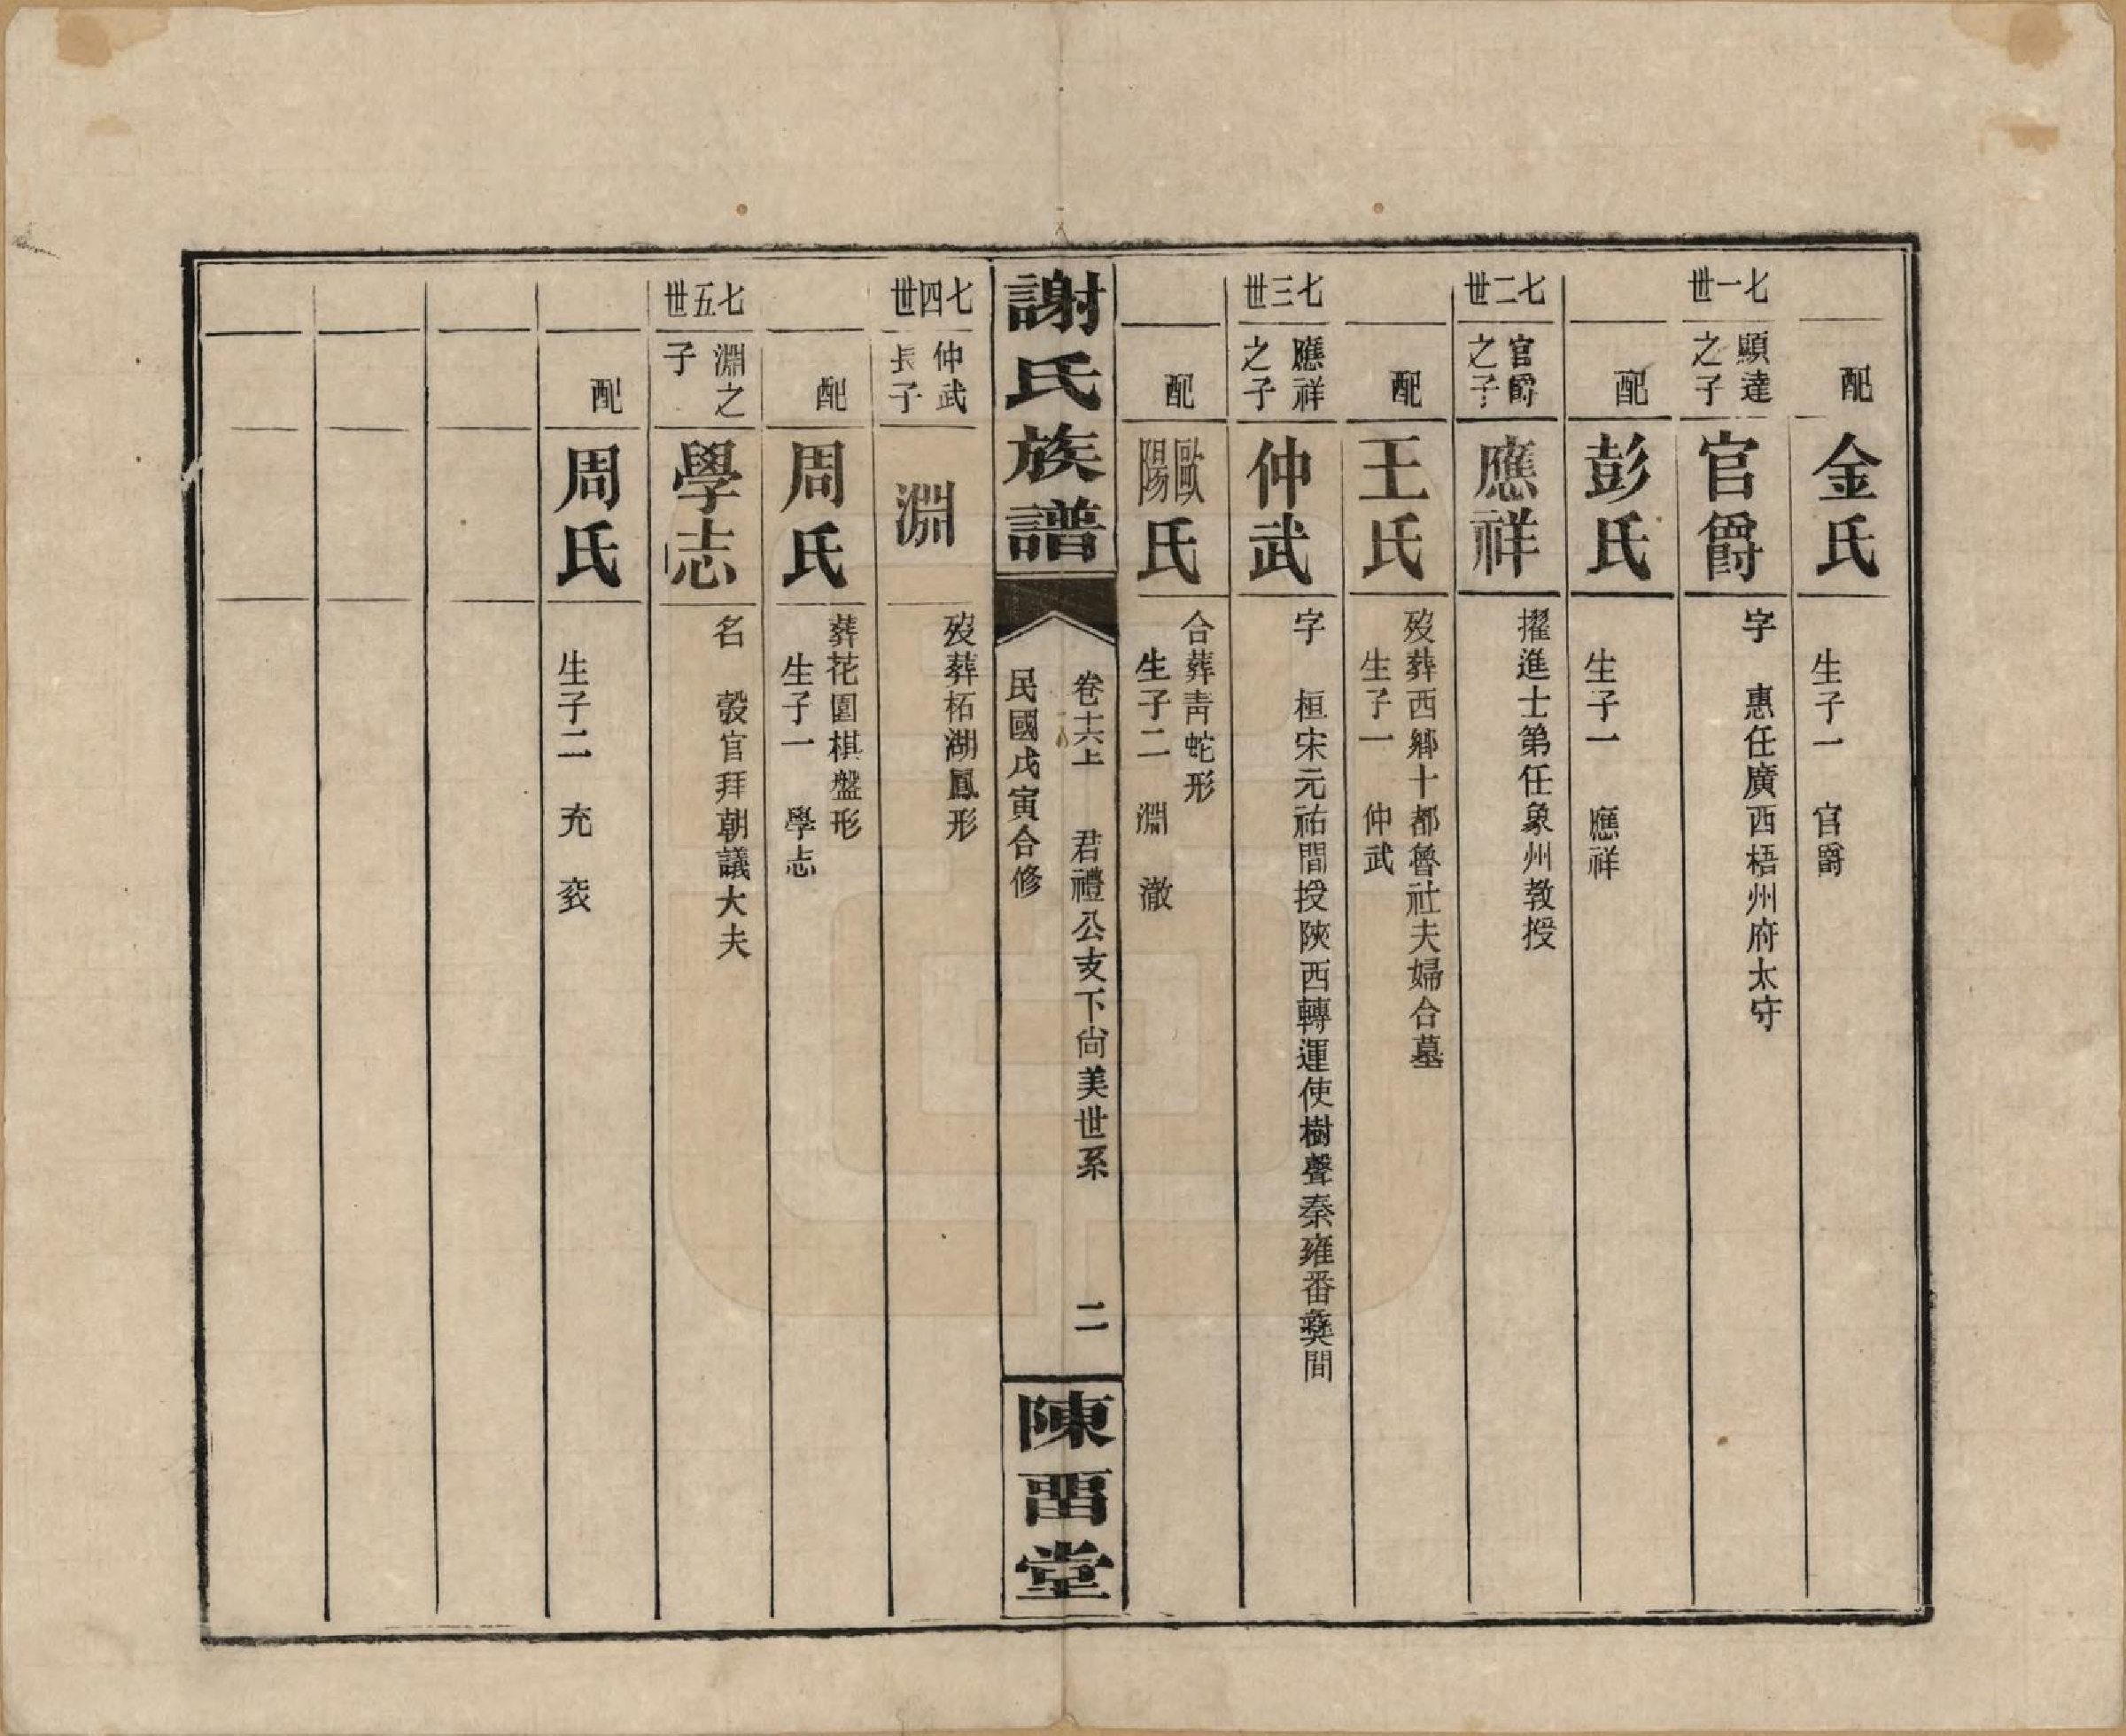 配
金氏
生子一　官爵
七一世
顯達之子
官爵
字　惠任廣西梧州府太守
配
彭氏
生子一　應祥
七二世
官爵之子
應祥
擢進士第任象州教授
配
王氏
歿葬西鄉十都魯社夫婦合墓
生子一　仲武
七三世
應祥之子
仲武
字　桓宋元祐間授陝西轉運使樹聲秦雍番彝間
配
歐陽氏
合葬靑蛇形
生子二　淵　澈
謝氏族譜
卷十六上　君禮公支下尙美世系　二
民國戊寅合修
陳畱堂
七四世
仲武長子
淵
歿葬柘湖鳳形
配
周氏
葬花園棋盤形
生子一　學志
七五世
淵之子
學志
名　彀官拜朝議大夫
配
周氏
生子二　充　袞